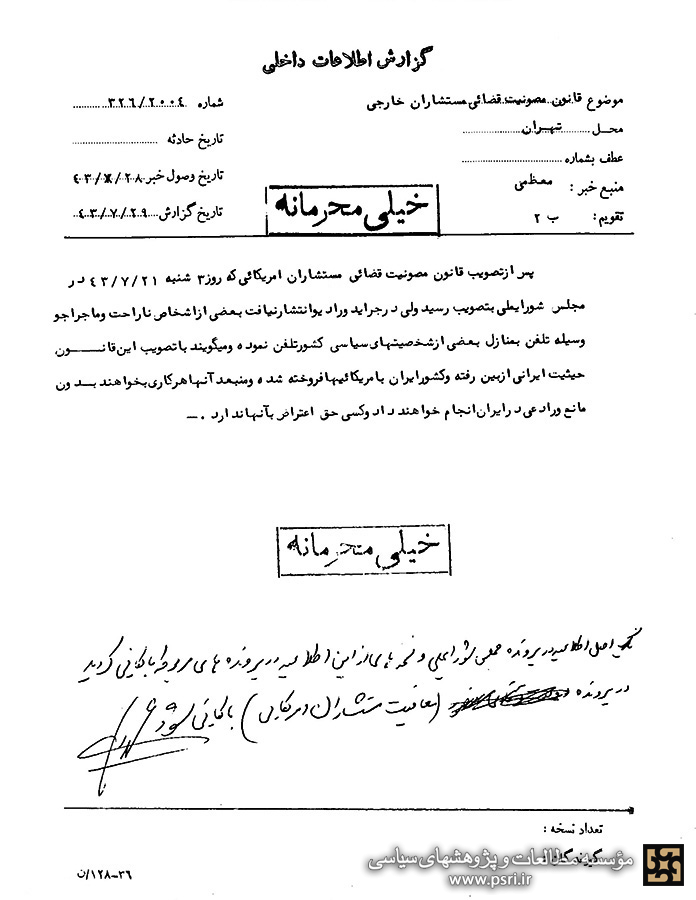 گزارش اطلاعات داخلی
موضوع قانون مصونیت قضائی مستشاران خارجی
شماره ۳۲۶/۲۰۰۴
محل تهران
تاریخ حادثه
عطف بشماره
منبع خبر : معظمی
تاریخ وصول خبر ۴۳/۷/۲۸
تقویم : ب ۲
تاریخ گزارش ۴۳/۷/۲۹
خیلی محرمانه
پس ازتصویب قانون مصونیت قضائی مستشاران امریکائی که روز ۳ شنبه ۴۳/۷/۲۱ در
مجلس شورایملی بتصویب رسید ولی درجراید ورادیوانتشارنیافت بعضی ازاشخاص ناراحت وماجراجو
وسیله تلفن بمنازل بعضی ازشخصیتهای سیاسی کشورتلفن نموده ومیگویند باتصویب این قانـــــون
حیثیت ایرانی ازبین رفته وکشورایران بامریکائیهافروخته شده ومنبعد آنهاهرکاری بخواهند بدون
مانع ورادعی درایران انجام خواهند داد وکسی حق اعتراض بآنهاندارد .ــ
خیلی محرمانه
اصل اطلاعیه در پرونده مجلس شورایملی و نسخه های از این اطلاعیه در پرونده های مربوطه بایگانی گردید
در پرونده (معافیت مستشاران امریکایی) بایگانی شود
تعداد نسخه :
گیرندگان :
۱۲۸-۳۶/ن
مؤسسه مطالعات و پژوهشهای سیاسی
www.psri.ir